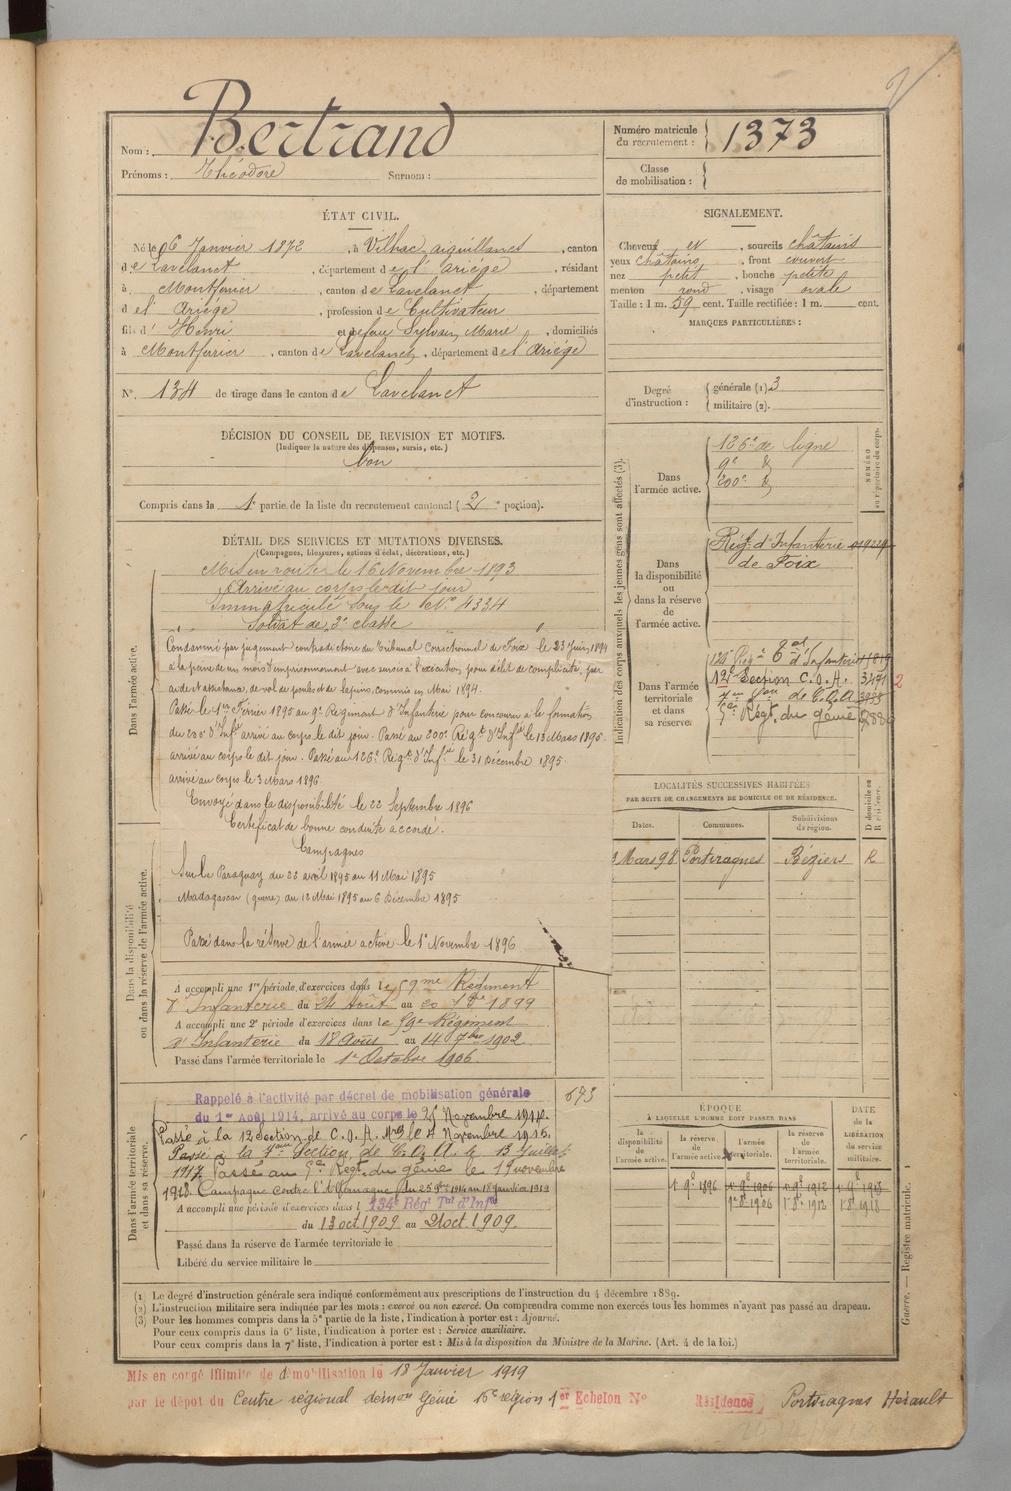 Nom : Bertrand
Prénoms : Théodore Surnom :
Numéro matricule du recrutement : 1373
Classe de mobilisation :
ÉTAT CIVIL.
Né le 26 Janvier 1872, à Vilhac aiguillanes, canton
de Lavelanet, département de l'ariége, résidant
à Montferrier, canton de Lavelanet, département
d el' Ariége, profession de Cultivateur
fils d' Henri et de feue Sylvain, Marie, domiciliés
à Montferrier, canton de Lavelanet, département de l'Ariége
N° 134 de tirage dans le canton de Lavelanet
SIGNALEMENT.
Cheveux et, sourcils châtains
yeux châtains, front couvert
nez petit, bouche petite
menton rond, visage ovale
Taille : 1 m. 59 cent. Taille rectifiée : 1 m. cent.
MARQUES PARTICULIÈRES :
Degré d'instruction :
générale (1) 3
militaire (2).
DÉCISION DU CONSEIL DE REVISION ET MOTIFS.
(Indiquer la nature des dispenses, sursis, etc.)
bon
Compris dans la 1e partie de la liste du recrutement cantonal ( 2 e portion).
DÉTAIL DES SERVICES ET MUTATIONS DIVERSES.
(Campagnes, blessures, actions d'éclat, décorations, etc.)
Dans l'armée active.
Mis en route le 16 Novembre 1893
Arrivé au corps le dit jour
Immatriculé sous le N° 4334
Soldat de 2e classe
Condamné par jugement contradictoire du Tribunal Correctionnel de Foix le 23 Juin 1894
à la peine de un mois d'emprisonnement avec sursis à l'exécution, pour délit de complicité, par
aide et assistance, de vol de poules et de lapins, commis en Mai 1894.
Passé le 1er Février 1895 au 9e Regiment d'Infanterie pour concourir à la formation
du 200e d'Inf. arrivé au corps le dit jour. Passé au 200e Régt d'Infie le 13 Mars 1895.
arrivé au corps le dit jour. Passé au 126e Régt d'Infie le 31 Décembre 1895.
arrivé au corps le 3 Mars 1896
Envoyé dans la disponibilité le 22 Septembre 1896
Certificat de bonne conduite accordé.
Campagnes
Sur le Paraguay du 22 avril 1895 au 11 Mai 1895
Madagascar (guerre) du 12 Mai 1895 au 6 Décembre 1895
Passé dans la réserve de l'armée active le 1er Novembre 1896
Dans la disponibilité ou dans la réserve de l'armée active.
A accompli une 1re période d'exercices dans le 59me Régiment
d'Infanterie du 24 Août au 20 7bre 1899
A accompli une 2e période d'exercices dans le 59e Régiment
d'Infanterie du 18 Août au 14 7bre 1902
Passé dans l'armée territoriale le 1er Octobre 1906
Dans l'armée territoriale et dans sa réserve.
Rappelé à l'activité par décret de mobilisation générale
du 1er Août 1914, arrivé au corps le 25 Novembre 1914.
Passé à la 12 Section de C.O.A. le 4 Novembre 1915.
Passé à la Section de C.O.A. le 13 Juillet
1917. Passé au Régt du génie le 15 novembre
1918. Campagne contre l'Allemagne du 25 9bre 1914 au 18 Janvier 1919
A accompli une période d'exercices dans l 134e Régt Tal d'Infie
du 13 oct 1909 au 21 oct 1909.
Passé dans la réserve de l'armée territoriale le
Libéré du service militaire le
673
Indication des corps auxquels les jeunes gens sont affectés (3).
NUMÉRO au répertoire du corps.
Dans l'armée active.
126e de ligne
9e d°
200e d°
Dans la disponibilité ou dans la réserve de l'armée active.
Régt d'Infanterie
de Foix
Dans l'armée territoriale et dans sa réserve.
Régt Tal d'Infanterie
12e Section C.O.A. 3471
Son de C.O.A.
Régt du génie
2
LOCALITÉS SUCCESSIVES HABITÉES
PAR SUITE DE CHANGEMENTS DE DOMICILE OU DE RÉSIDENCE.
Dates. Communes. Subdivisions de région. D domicile ou R résidence.
Mars 98 Portiragnes Béziers R
ÉPOQUE
À LAQUELLE L'HOMME DOIT PASSER DANS
DATE de la LIBÉRATION du service militaire.
la disponibilité de l'armée active. la réserve de l'armée active. l'armée territoriale. la réserve de l'armée territoriale.
1 9e 1896 1 9e 1906 1 9e 1912 1 9e 1918
1er 8e 1906 1er 8e 1912 1er 8e 1918
(1) Le degré d'instruction générale sera indiqué conformément aux prescriptions de l'instruction du 4 décembre 1889.
(2) L'instruction militaire sera indiquée par les mots : exercé ou non exercé. On comprendra comme non exercés tous les hommes n'ayant pas passé au drapeau.
(3) Pour les hommes compris dans la 5e partie de la liste, l'indication à porter est : Ajourné.
Pour ceux compris dans la 6e liste, l'indication à porter est : Service auxiliaire.
Pour ceux compris dans la 7e liste, l'indication à porter est : Mis à la disposition du Ministre de la Marine. (Art. 4 de la loi.)
Guerre. — Registre matricule. 1
Mis en congé illimité de démobilisation le 18 Janvier 1919
par le dépôt du Centre régional démon Génie 16e région 1er Echelon N° Résidence Portiragnes Hérault